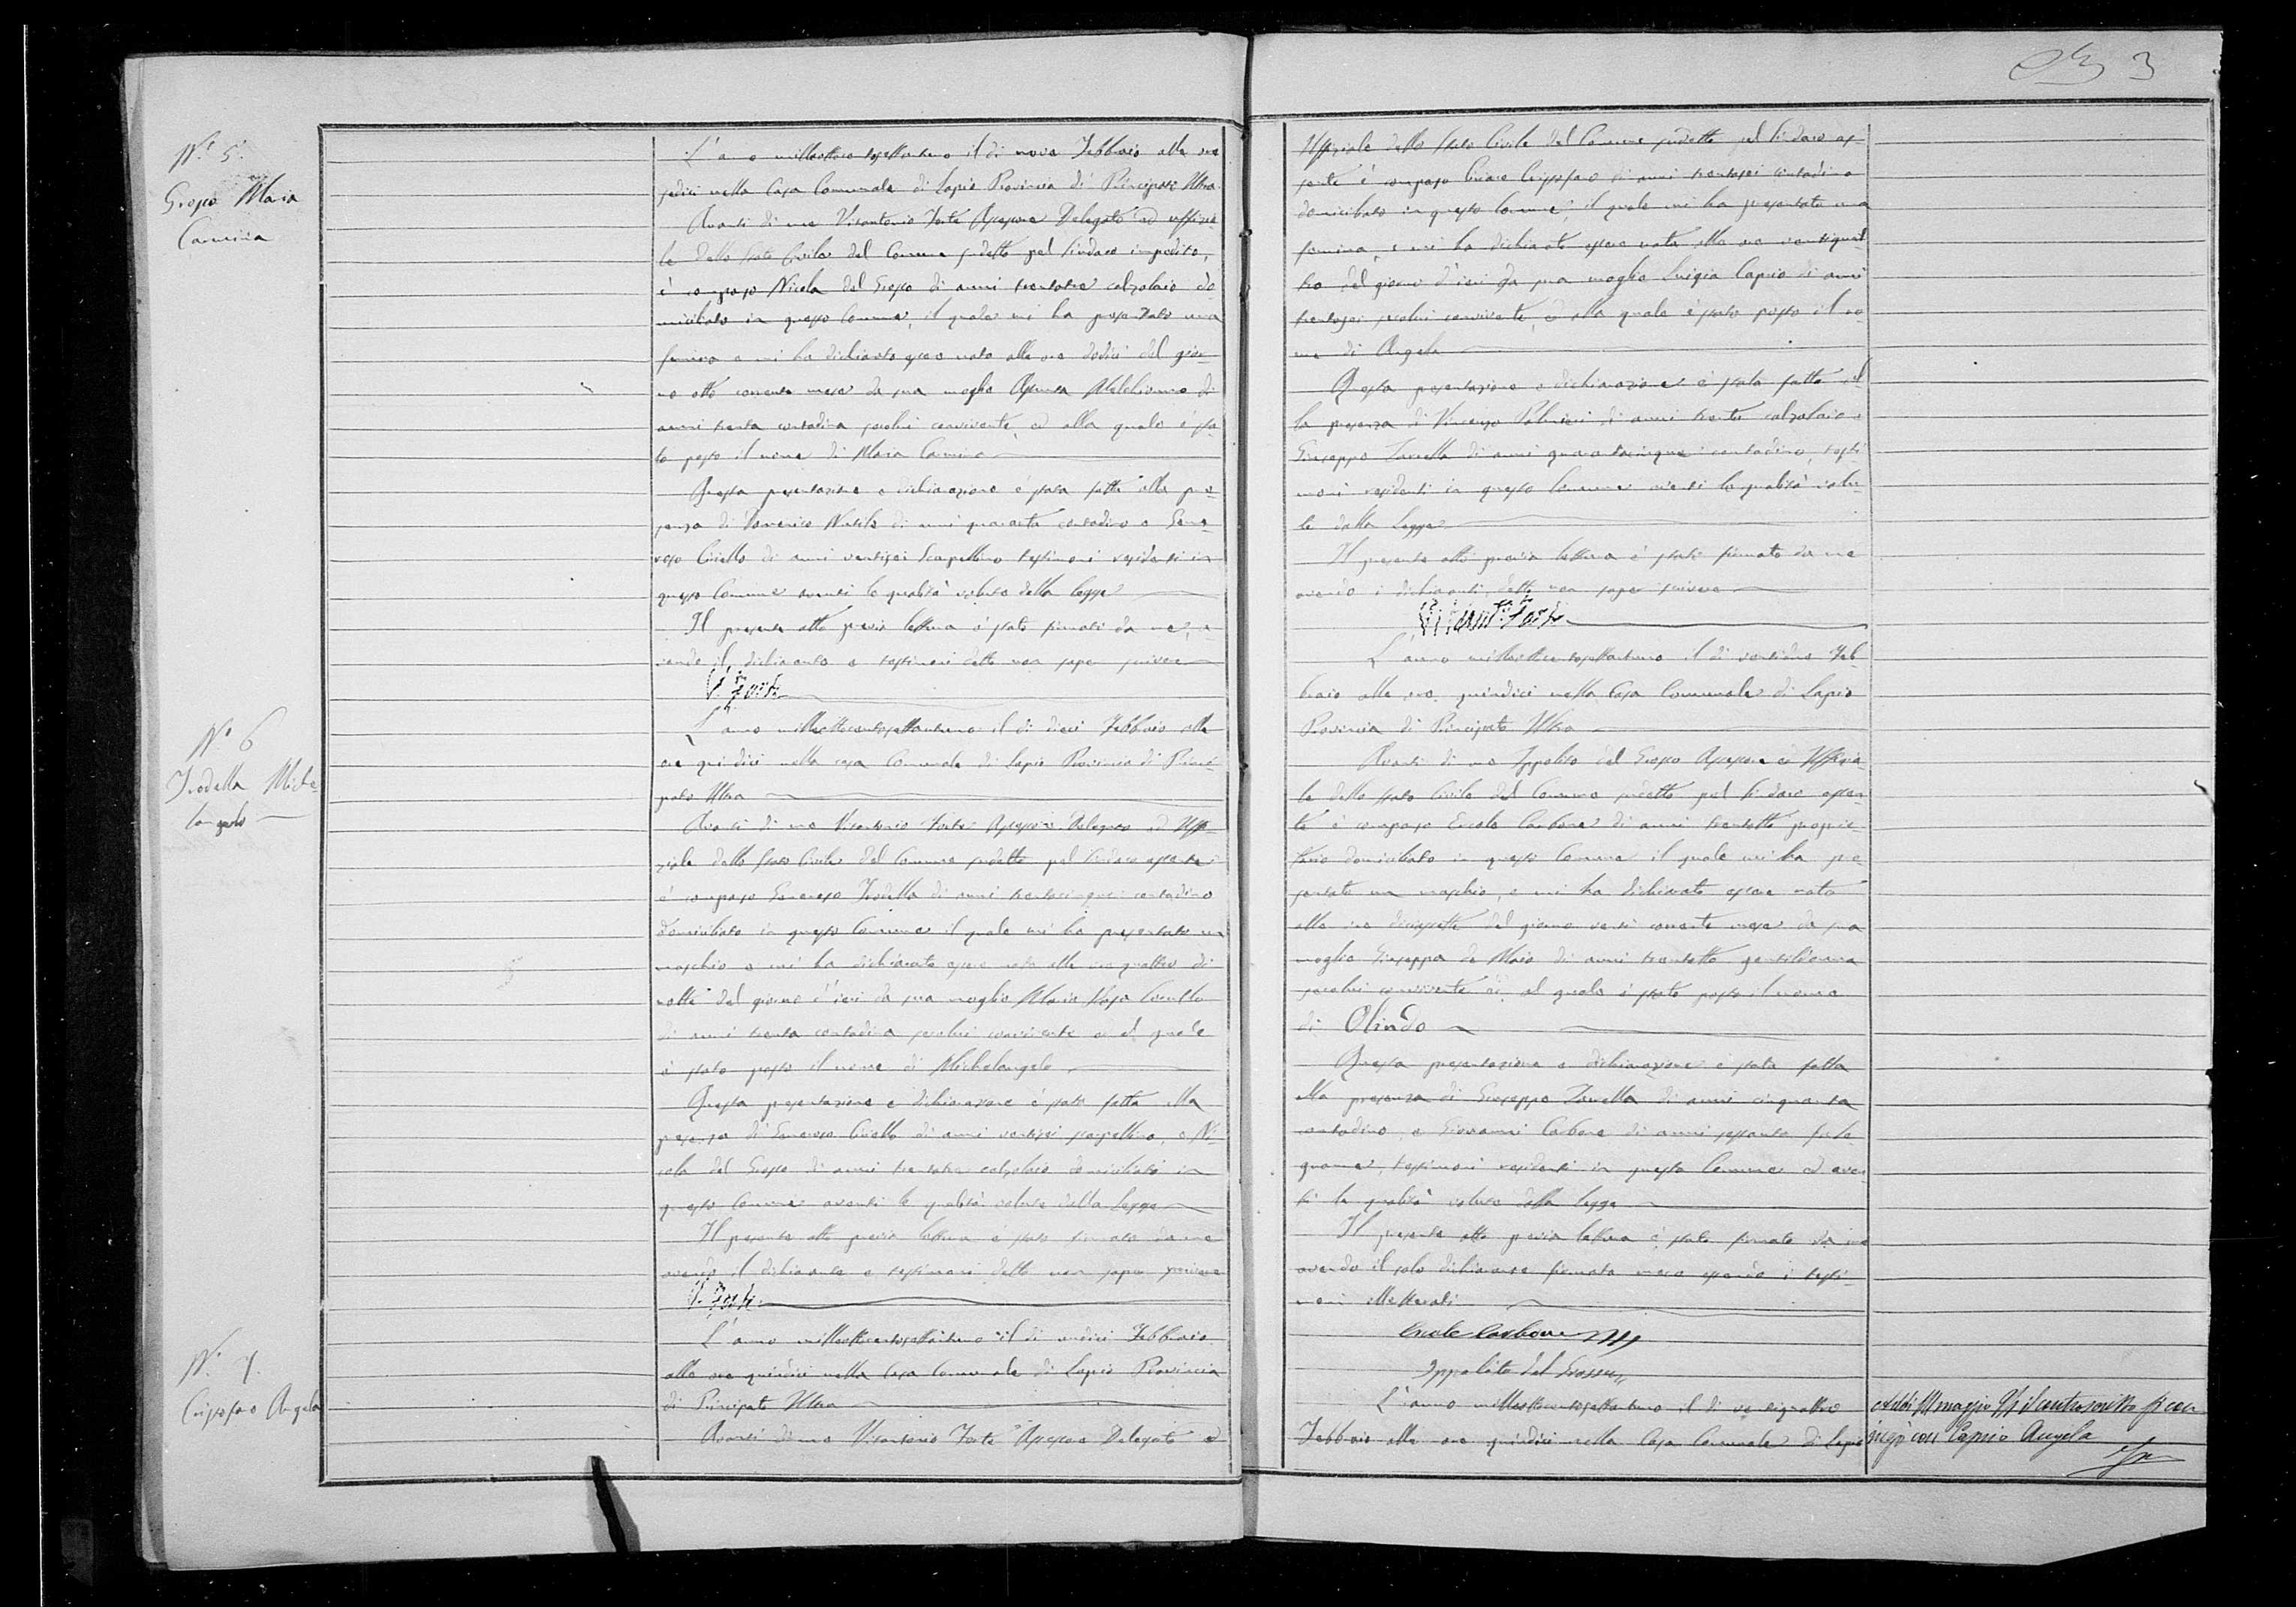 3
N.° 5.
Grosso Maria
Carmina
L'anno milleottocentosettantuno il dì nove Febbraio alle ore
sedici nella Casa Comunale di Lapio Provincia di Principato Ultra.
Avanti di me Vitantonio Forte Assessore Delegato ed uffizia-
le dello Stato Civile del Comune sudetto pel Sindaco impedito,
è comparso Nicola del Grosso di anni trentatre calzolaio do-
miciliato in questo Comune, il quale mi ha presentato una
femina e mi ha dichiarato esser nata alle ore dodici del gior-
no otto corrente mese da sua moglie Assunta Melchionno di
anni trenta contadina secolui convivente, ed alla quale è sta-
to posto il nome di Maria Carmina
Questa presentazione e dichiarazione è stata fatta alla pre-
senza di Domenico di anni quaranta contadino e Gene-
roso Ciriello di anni ventisei Scarpellino testimoni residenti in
questo Comune aventi le qualità volute dalla legge
Il presente atto previa lettura è stato firmato da me, a-
vendo il dichiarante e testimoni detto non saper scrivere
V. Forte
N.° 6
Trodella Miche-
langelo
L'anno milleottocentosettantuno il dì dieci Febbraio alle
ore quindici nella casa Comunale di Lapio Provincia di Princi-
pato Ultra
Avanti di me Vitantonio Forte Assessore Delegato ed Uffi-
ziale dello Stato Civile del Comune sudetto pel Sindaco assente
è comparso Generoso Trodella di anni trentacinque contadino
domiciliato in questo Comune il quale mi ha presentato un
maschio e mi ha dichiarato esser nato alle ore quattro di
notte del giorno d'ieri da sua moglie Maria Rosa
di anni trenta contadina secolui convivente ed al quale
è stato posto il nome di Michelangelo
Questa presentazione e dichiarazione è stata fatta alla
presenza di Generoso Ciriello di anni ventisei scarpellino, e Ni-
cola del Grosso di anni trentatre calzolaio domiciliati in
questo Comune aventi le qualità volute dalla Legge
Il presente atto previa lettura è stato firmato da me
avendo il dichiarante e testimoni detto non saper scrivere
V. Forte
N.° 7.
Crisostomo Angela
L'anno milleottocentosettantuno il dì undici Febbraio
alle ore quindici nella Casa Comunale di Lapio Provincia
di Principato Ultra
Avanti di me Vitantonio Forte Assessore Delegato ed
Uffiziale dello Stato Civile del Comune sudetto pel Sindaco as-
sente è comparso di anni trentasei contadino
domiciliato in questo Comune, il quale mi ha presentato una
femina, e mi ha dichiarato essere nata alle ore ventiquat-
tro del giorno d'ieri da sua moglie Luigia Caprio di anni
trentasei secolui convivente, ed alla quale è stato posto il no-
me di Angela
Questa presentazione e dichiarazione è stata fatta al-
la presenza di Vincenzo di anni trenta calzolaio e
Giuseppe Zarrella di anni quarantacinque contadino, testi
moni residenti in questo Comune aventi le qualità volu-
te dalla Legge
Il presente atto previa lettura è stato firmato da me
avendo i dichiaranti detto non saper scrivere
Vitant. Forte
L'anno milleottocentosettantuno il dì ventidue Feb-
braio alle ore quindici nella Casa Comunale di Lapio
Provincia di Principato Ultra
Avanti di me Ippolito del Grosso Assessore ed Uffizia-
le dello Stato Civile del Comune sudetto pel Sindaco assen-
te è comparso Ercole Carbone di anni trentotto proprie-
tario domiciliato in questo Comune il quale mi ha pre-
sentato un maschio, e mi ha dichiarato essere nato
alle ore diciassette del giorno venti corrente mese da sua
moglie Giuseppa de Maio di anni trentotto gentildonna
secolui convivente ed al quale è stato posto il nome
di Olindo
Questa presentazione e dichiarazione è stata fatta
alla presenza di Giuseppe Zarrella di anni cinquanta
contadino, e Giovanni Carbone di anni sessanta fale-
gname, testimoni residenti in questo Comune ed aven-
ti le qualità volute dalla legge
Il presente atto previa lettura è stato firmato da me
avendo il solo dichiarante firmato meco essendo i testi-
moni illetterati
Ercole Carbone
Ippolito del Grosso
L'anno milleottocentosettantuno il dì ventiquattro
Febbraio alle ore quindici nella Casa Comunale di Lapio
maggio il controscritto si con
iugò con Caprio Angela